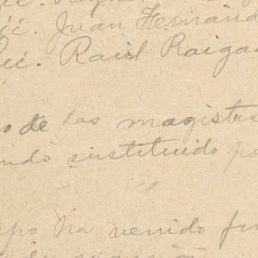 Juan Fernánd
Lic. Raúl Raigad
o de las magistra
ndo sustituido po
po ha venido fu